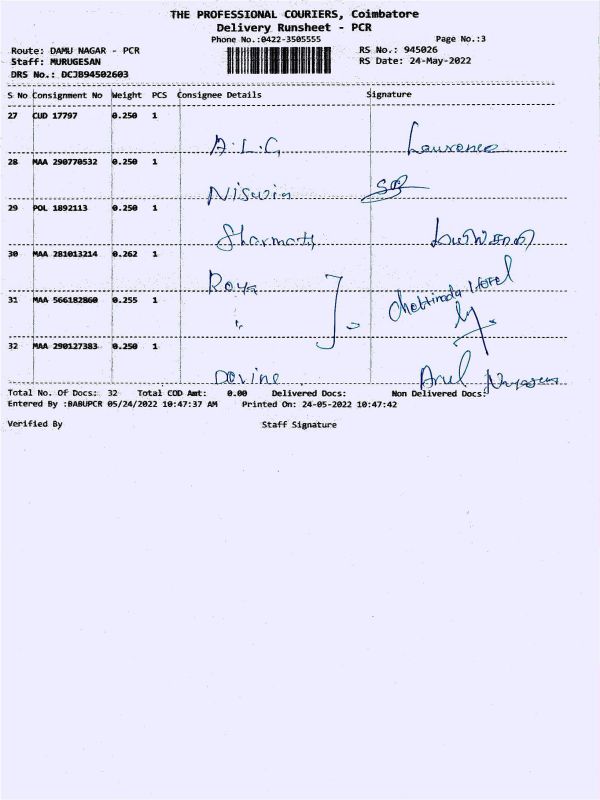 THE PROFESSIONAL COURIERS, Coimbatore
Delivery Runsheet - PCR
Phone No.:0422-3505555
Page No.:3
Route: DAMU NAGAR - PCR
RS No.: 945026
Staff: MURUGESAN
RS Date: 24-May-2022
DRS No.: DCJB94502603
S No Consignment No Weight PCS Consignee Details Signature
27 CUD 17797 0.250 1
A.L.G Lawrence
28 MAA 290770532 0.250 1
Niswin
29 POL 1892113 0.250 1
Sharmath
30 MAA 281013214 0.262 1
Roya
31 MAA 566182860 0.255 1
Hotel
32 MAA 290127383 0.250 1
Dovine Arul
Total No. Of Docs: 32 Total COD Amt: 0.00 Delivered Docs: Non Delivered Docs:
Entered By :BABUPCR 05/24/2022 10:47:37 AM Printed On: 24-05-2022 10:47:42
Verified By Staff Signature